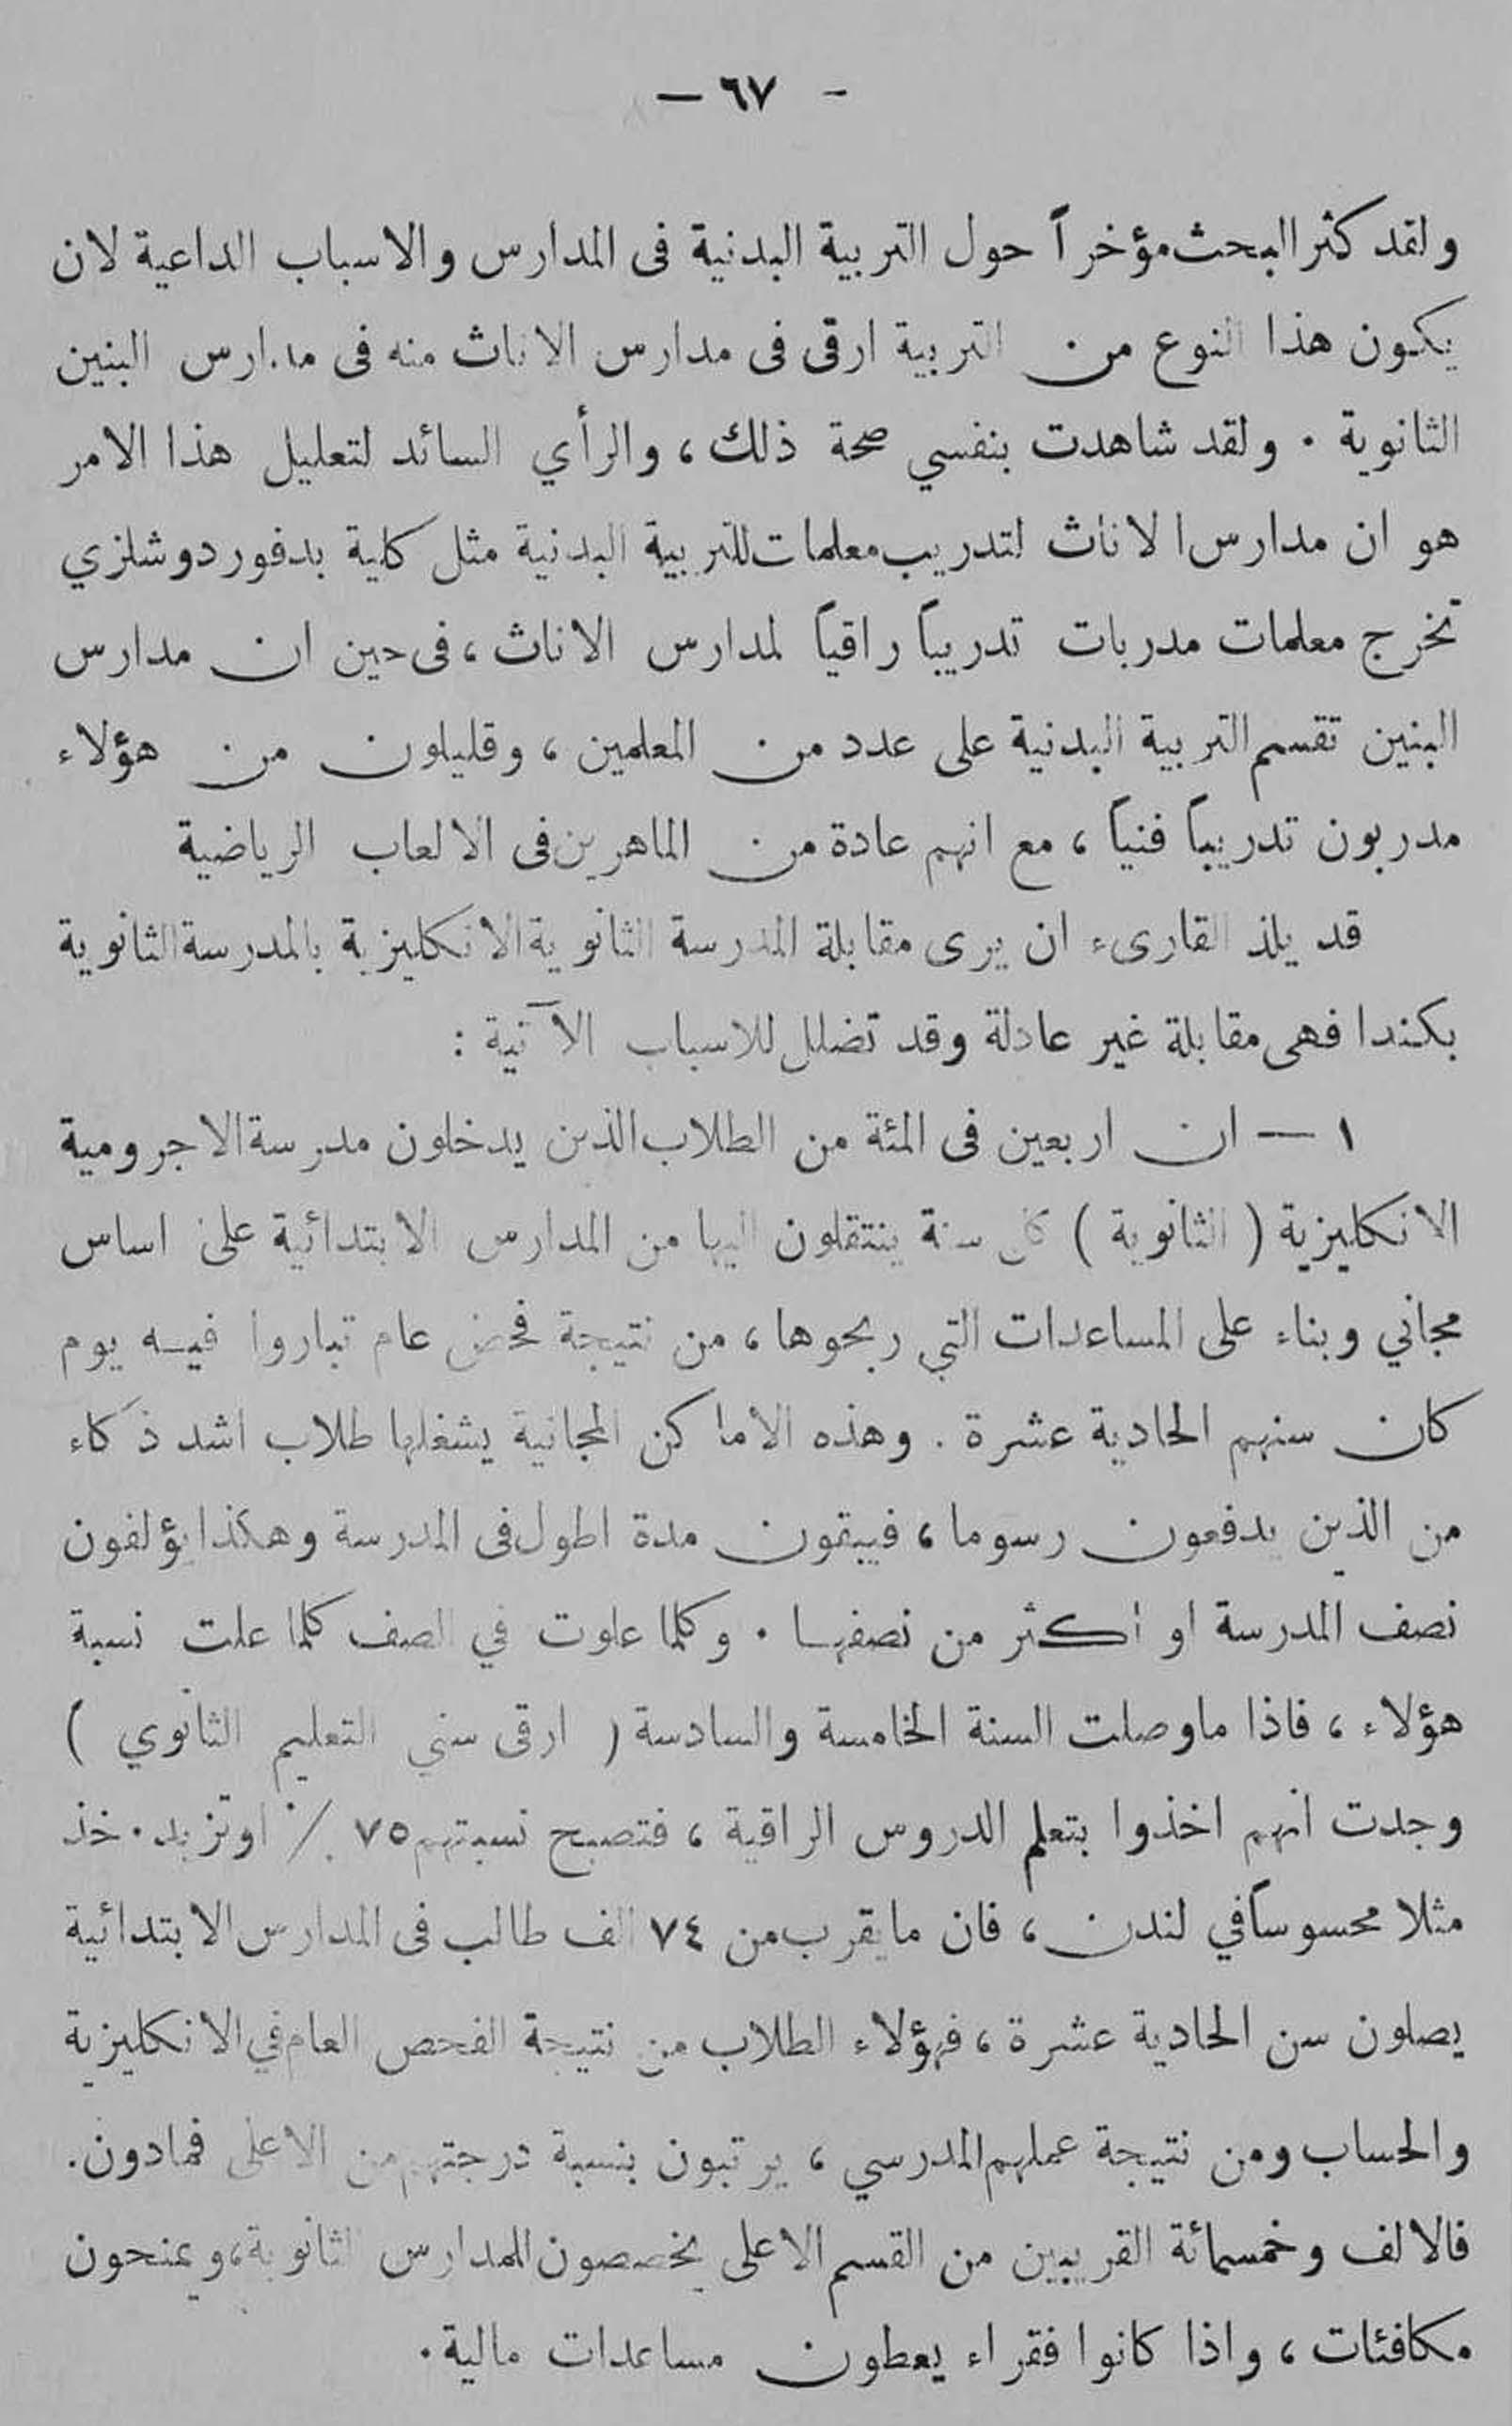 - ٦٧ —
ولقد كثر البحث مؤخراً حول التربية البدنية فى المدارس والاسباب الداعية لان
يكون هذا النوع من التربية ارقى فى مدارس الاناث منه فى مدارس البنين
الثانوية . ولقد شاهدت بنفسي صحة ذلك ، والرأي السائد لتعليل هذا الامر
هو ان مدارس الاناث لتدريب معلمات للتربية البدنية مثل كلية بدفورد وشلزي
تخرج معلمات مدربات تدريباً راقياً لمدارس الاناث ، فى حين ان مدارس
البنين تقسم التربية البدنية على عدد من المعلمين ، وقليلون من هؤلاء
مدربون تدريباً فنياً ، مع انهم عادة من الماهرين فى الالعاب الرياضية
قد يلذ القارىء ان يرى مقابلة المدرسة الثانوية الانكليزية بالمدرسة الثانوية
بكندا فهى مقابلة غير عادلة وقد تضلل للاسباب الآتية :
١ — ان اربعين فى المئة من الطلاب الذين يدخلون مدرسة الاجرومية
الانكليزية ( الثانوية ) كل سنة ينتقلون اليها من المدارس الابتدائية على اساس
مجاني وبناء على المساعدات التي ربحوها ، من نتيجة فحص عام تباروا فيه يوم
كان سنهم الحادية عشرة . وهذه الاماكن المجانية يشغلها طلاب اشد ذكاء
من الذين يدفعون رسوما ، فيبقون مدة اطول فى المدرسة وهكذا يؤلفون
نصف المدرسة او اكثر من نصفها . وكلما علوت في الصف كلما علت نسبة
هؤلاء ، فاذا ما وصلت السنة الخامسة والسادسة ( ارقى سني التعليم الثانوي )
وجدت انهم اخذوا بتعلم الدروس الراقية ، فتصبح نسبتهم ٧٥ ٪ او تزيد . خذ
مثلا محسوساً في لندن ، فان ما يقرب من ٧٤ الف طالب فى المدارس الابتدائية
يصلون سن الحادية عشرة ، فهؤلاء الطلاب من نتيجة الفحص العام في الانكليزية
والحساب ومن نتيجة عملهم المدرسي ، يرتبون بنسبة درجتهم من الاعلى فمادون .
فالالف وخمسمائة القريبين من القسم الاعلى يخصصون للمدارس الثانوية ، ويمنحون
مكافئات ، واذا كانوا فقراء يعطون مساعدات مالية .